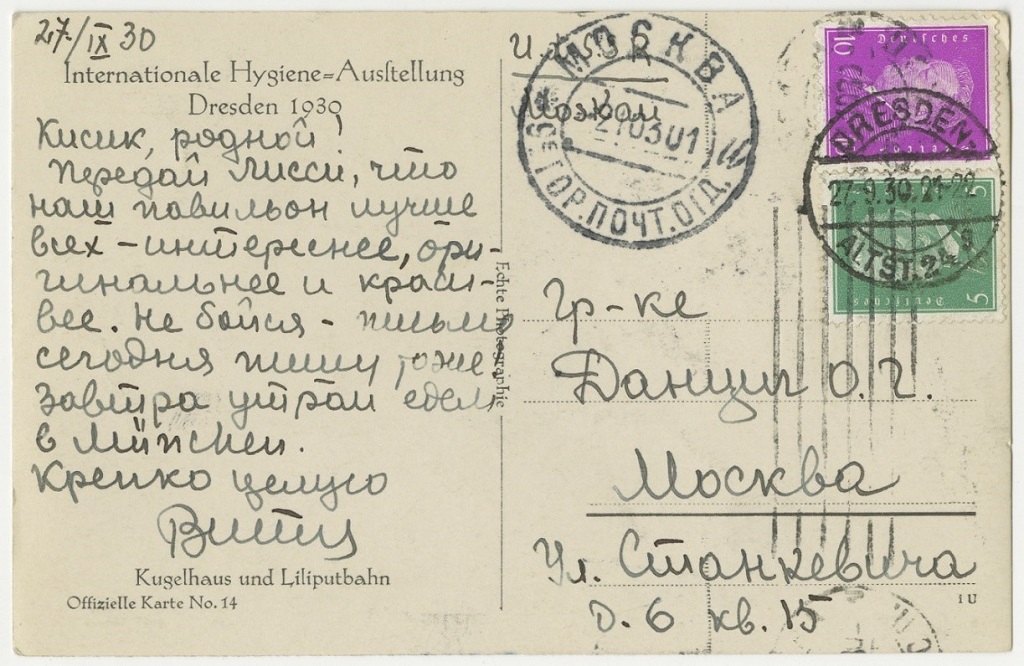 27/IX 30
Internationale Hygiene=Ausſtellung
Dresden 1930
Кисик, родной!
Передай Лисси, что
наш павильон лучше
всех – интереснее, ори-
гинальнее и краси-
вее. Не бойся – письмо
сегодня пишу, уже
завтра утром едем
в München.
Крепко целую
Kugelhaus und Liliputbahn
Offizielle Karte No. 14
Echte Photographie
U.d.S.S.R.
Moskau
МОСКВА
9
27 03 01
ГОР.ПОЧТ.ОТД.
Deutsches
10
DRESDEN
27.9.30.21-22
ALTST. 24
5
5
Deutsches
Гр-ке
Данциг О. Г.
Москва
Ул. Станкевича
д. 6 кв. 15
1 U